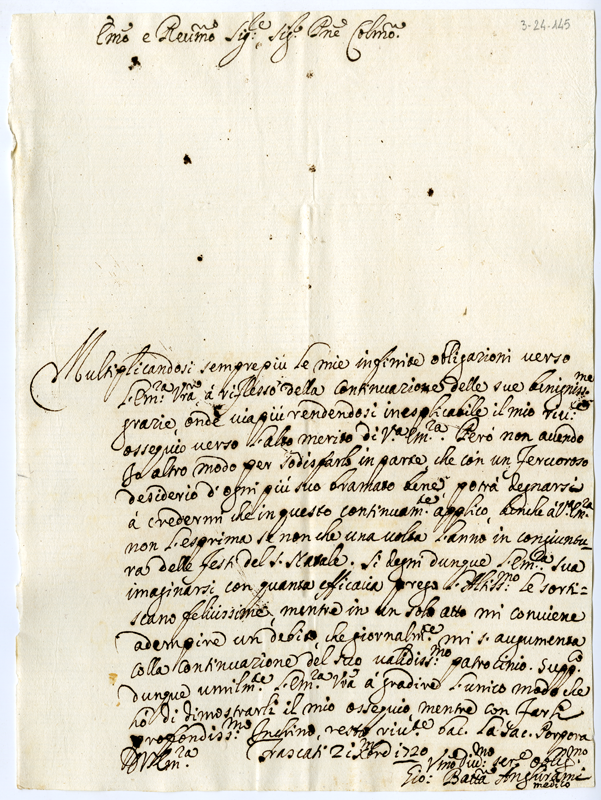 3-24-145
Emo e Reumo Sig.re Sig.r Pne Colmo.
Multiplicandosi semprepiù le mie infinite obligazioni verso
l'Em.ra Vrã, à riflesso della continuazione delle sue benigniss.me
grazie, onde viapiù rendendosi inesplicabile il mio riu.te
ossequio verso l'alto merito di V.a Em.ra. Però non auendo
Io altro modo per sodisfarlo in parte, che con un feruoroso
desiderio d'ogni più suo bramato bene, potrà degnarsi
à credermi che in questo continuam.te applico, benche all'Em.ra
non l'esprima se non che una volta l'anno in conjuntu-
ra delle feste del S. Natale. Si degni dunque l'Em.za sua
imaginarsi con quanta efficacia prego l'Altiss.mo le sorti-
scano felicissime, mentre in un solo atto mi conuiene
adempire un debito, che giornalm.te mi s'augumenta
colla continuazione del suo validiss.mo patrocinio. Supp.co
dunque umilm.te l'Em.ra Vrã à gradire l'unico modo che
hò di dimostrarli il mio ossequio mentre con farli
profondiss.mo Inchino, resto riu.te bac. la Sac. Porpora
Di V. Em.ra Frascati 21 Xbre 1720
Vmo Diu.mo ser.e oblig.mo
Gio: Batta
medico